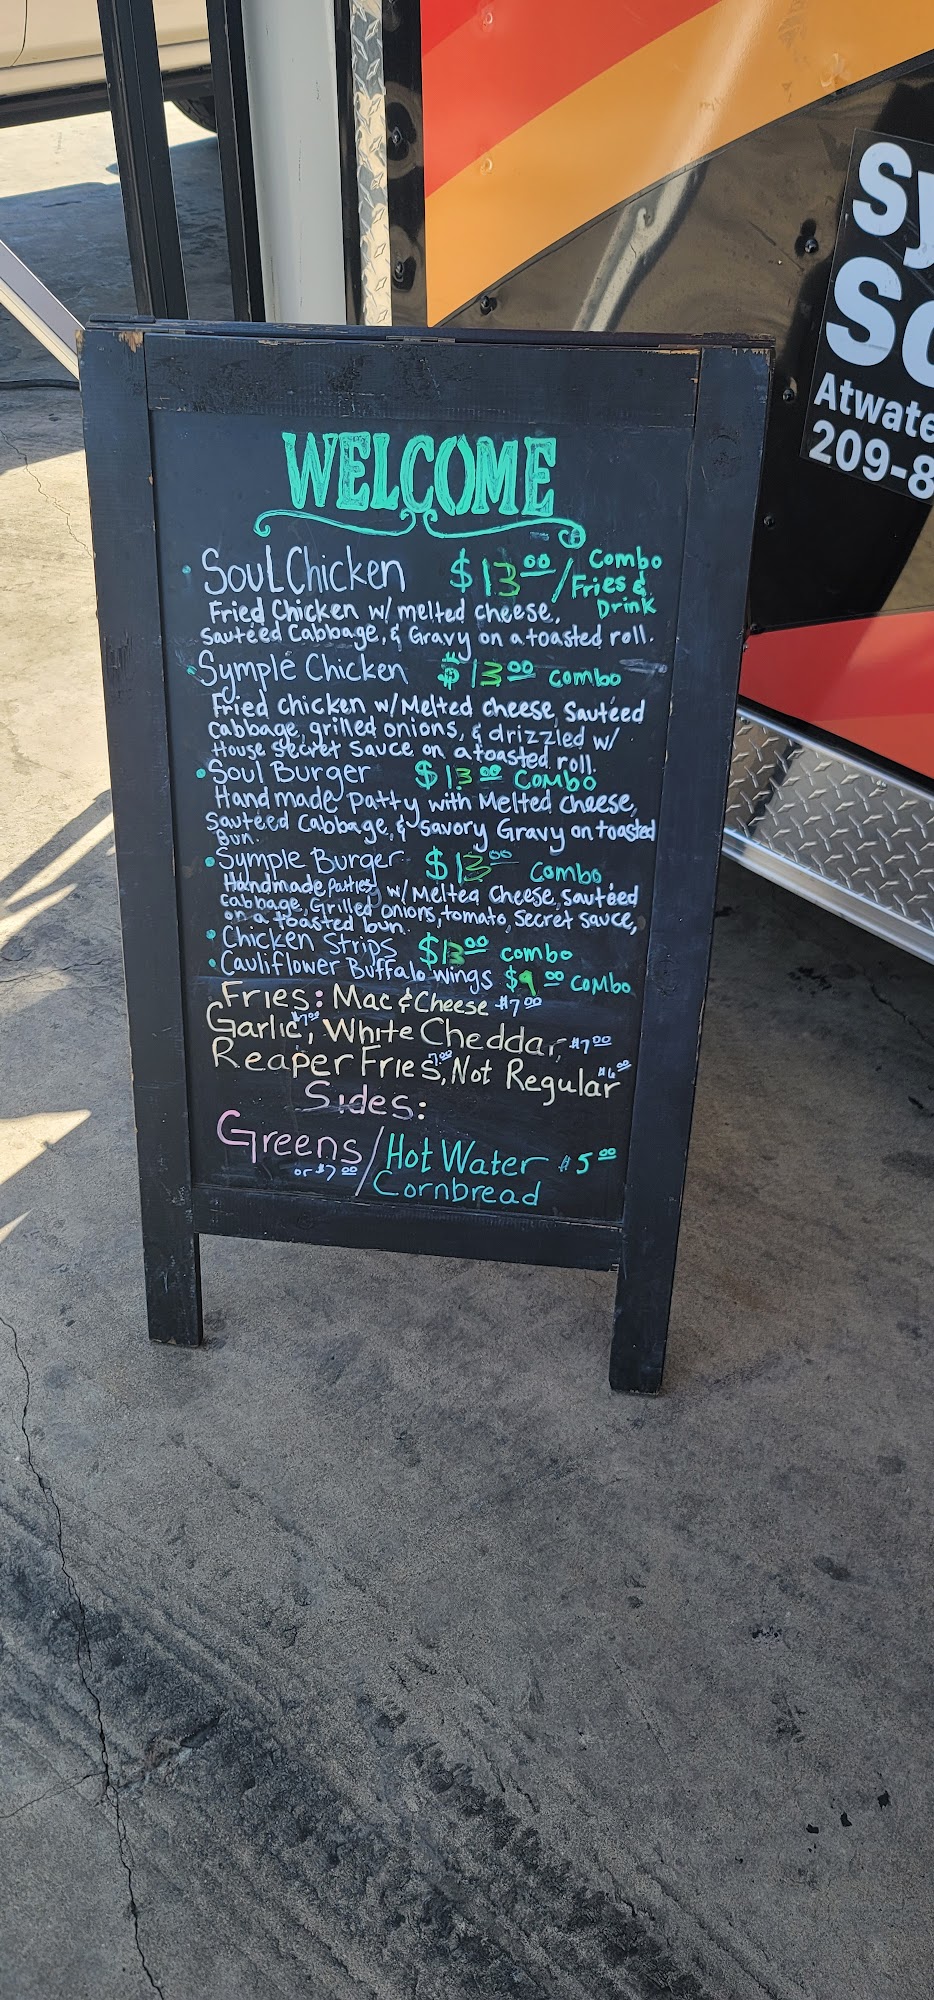 WELCOME
• Soul Chicken $13.00 / Combo Fries & Drink
Fried Chicken w/ melted cheese,
sautéed Cabbage, & Gravy on a toasted roll.
• Symple Chicken $13.00 combo
Fried chicken w/ Melted cheese, Sautéed
cabbage, grilled onions, & drizzled w/
House secret sauce on a toasted roll.
• Soul Burger $13.00 Combo
Handmade patty with Melted cheese,
sautéed Cabbage, & savory Gravy on toasted
Bun.
• Symple Burger $13.00 Combo
Handmade patties w/ Melted Cheese, Sautéed
cabbage, Grilled onions, tomato, Secret sauce,
on a toasted bun.
• Chicken Strips $13.00 combo
• Cauliflower Buffalo wings $9.00 Combo
Fries: Mac & Cheese $7.00
Garlic $7.00, White Cheddar, $7.00
Reaper Fries 7.00, Not Regular $6.00
Sides:
Greens / Hot Water $5.00
or $7.00 Cornbread
Sy
So
Atwate
209-8